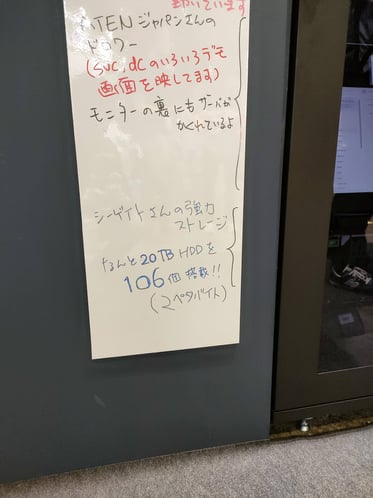 動いています
ATENジャパンさんの
ドロワー
(SVC, dcのいろいろデモ
画面を映してます)
モニターの裏にもサーバが
かくれているよ
シーゲイトさんの強力
ストレージ
なんと20TB HDDを
106個搭載!!
(2ペタバイト)